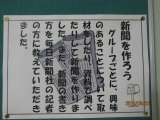 新聞を作ろう
グループごとに、興味
のあることについて取
材をしたり、資料で調べ
たりして新聞を作りま
した。また、新聞の書き
方を毎日新聞社の記者
の方に教えていただき
ました。